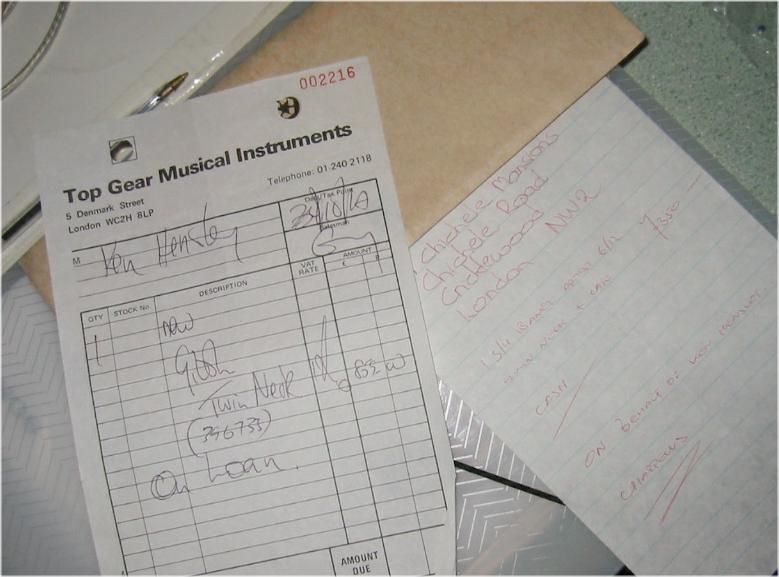 002216
Top Gear Musical Instruments
5 Denmark Street
London WC2H 8LP
Telephone: 01-240 2118
Date/Tax Point
M Ken Hensley
Salesman
QTY STOCK No. DESCRIPTION VAT RATE AMOUNT
£ P
1 New
Gibson
Twin Neck
(396733)
On Loan.
AMOUNT DUE
Chichele Mansions
Chichele Road
Cricklewood
London NW2
CASH
ON BEHALF OF KEN HENSLEY